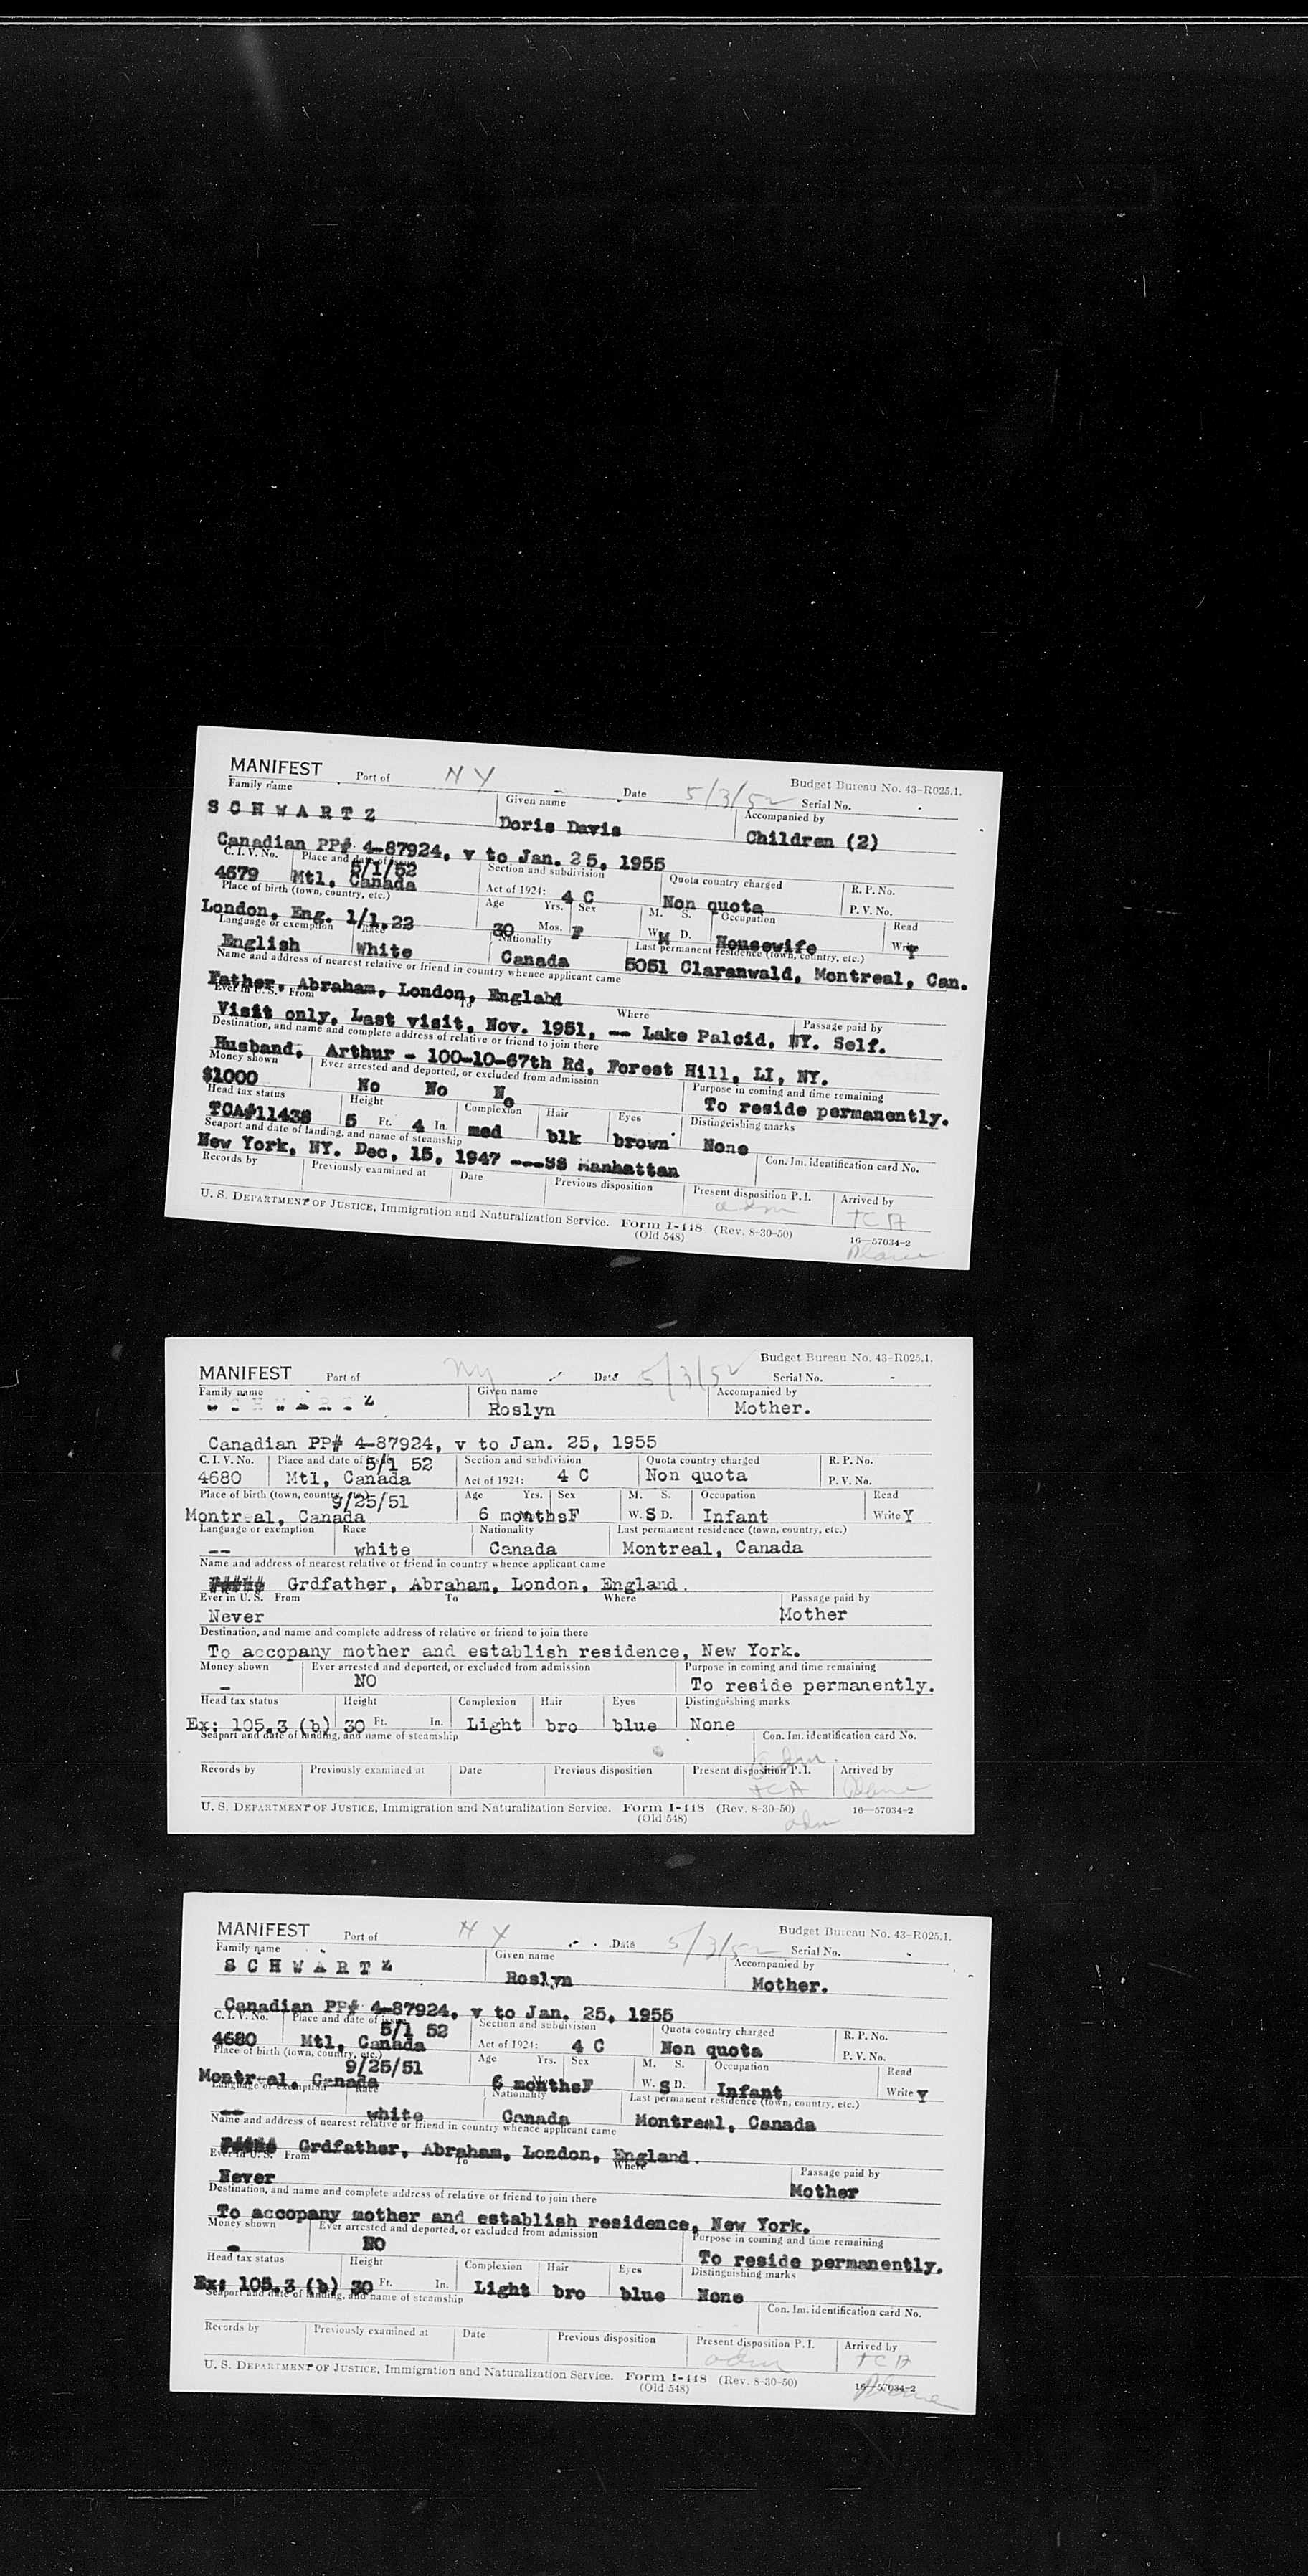 MANIFEST Port of N Y Date 5/3/52 Budget Bureau No. 43-R025.1.
Serial No.
Family name Given name Accompanied by
SCHWARTZ Doris Davis Children (2)
Canadian PP# 4-87924, v to Jan. 25, 1955
C. I. V. No. Place and date of issue 5/1/52 Section and subdivision Quota country charged R. P. No.
4679 Mtl, Canada Act of 1924: 4 C Non quota P. V. No.
Place of birth (town, country, etc.) Age Yrs. Sex M. S. Occupation Read
London, Eng. 1/1,22 30 Mos. F W. M D. Housewife Write Y
Language or exemption Race Nationality Last permanent residence (town, country, etc.)
English White Canada 5051 Claranwald, Montreal, Can.
Name and address of nearest relative or friend in country whence applicant came
Father, Abraham, London, England
Ever in U. S. From To Where Passage paid by
Visit only, Last visit, Nov. 1951, -- Lake Palcid, NY. Self.
Destination, and name and complete address of relative or friend to join there
Husband, Arthur - 100-10-67th Rd, Forest Hill, LI, NY.
Money shown Ever arrested and deported, or excluded from admission Purpose in coming and time remaining
$1000 No No No To reside permanently.
Head tax status Height Complexion Hair Eyes Distinguishing marks
TCA#11438 5 Ft. 4 In. med blk brown None
Seaport and date of landing, and name of steamship Con. Im. identification card No.
New York, NY. Dec, 15, 1947 ---SS Manhattan
Records by Previously examined at Date Previous disposition Present disposition P. I. Arrived by
adm TCA
U. S. DEPARTMENT OF JUSTICE, Immigration and Naturalization Service. Form I-448 (Rev. 8-30-50) 16—57034-2
(Old 548)
MANIFEST Port of NY Date 5/3/52 Budget Bureau No. 43-R025.1.
Serial No.
Family name Given name Accompanied by
SCHWARTZ Roslyn Mother.
Canadian PP# 4-87924, v to Jan. 25, 1955
C. I. V. No. Place and date of issue 5/1 52 Section and subdivision Quota country charged R. P. No.
4680 Mtl, Canada Act of 1924: 4 C Non quota P. V. No.
Place of birth (town, country, etc.) 9/25/51 Age Yrs. Sex M. S. Occupation Read
Montreal, Canada 6 months F W. S D. Infant Write Y
Language or exemption Race Nationality Last permanent residence (town, country, etc.)
-- white Canada Montreal, Canada
Name and address of nearest relative or friend in country whence applicant came
Grdfather, Abraham, London, England.
Ever in U. S. From To Where Passage paid by
Never Mother
Destination, and name and complete address of relative or friend to join there
To accopany mother and establish residence, New York.
Money shown Ever arrested and deported, or excluded from admission Purpose in coming and time remaining
- NO To reside permanently.
Head tax status Height Complexion Hair Eyes Distinguishing marks
Ex: 105.3 (b) 30 Ft. In. Light bro blue None
Seaport and date of landing, and name of steamship Con. Im. identification card No.
adm.
Records by Previously examined at Date Previous disposition Present disposition P. I. Arrived by
TCA
U. S. DEPARTMENT OF JUSTICE, Immigration and Naturalization Service. Form I-448 (Rev. 8-30-50) 16—57034-2
(Old 548) adm
MANIFEST Port of N Y Date 5/3/52 Budget Bureau No. 43-R025.1.
Serial No.
Family name Given name Accompanied by
SCHWARTZ Roslyn Mother.
Canadian PP# 4-87924, v to Jan. 25, 1955
C. I. V. No. Place and date of issue 5/1 52 Section and subdivision Quota country charged R. P. No.
4680 Mtl, Canada Act of 1924: 4 C Non quota P. V. No.
Place of birth (town, country, etc.) 9/25/51 Age Yrs. Sex M. S. Occupation Read
Montreal, Canada 6 months F W. S D. Infant Write Y
Language or exemption Race Nationality Last permanent residence (town, country, etc.)
-- white Canada Montreal, Canada
Name and address of nearest relative or friend in country whence applicant came
Grdfather, Abraham, London, England.
Ever in U. S. From To Where Passage paid by
Never Mother
Destination, and name and complete address of relative or friend to join there
To accopany mother and establish residence, New York.
Money shown Ever arrested and deported, or excluded from admission Purpose in coming and time remaining
- NO To reside permanently.
Head tax status Height Complexion Hair Eyes Distinguishing marks
Ex: 105.3 (b) 30 Ft. In. Light bro blue None
Seaport and date of landing, and name of steamship Con. Im. identification card No.
Records by Previously examined at Date Previous disposition Present disposition P. I. Arrived by
adm TCA
U. S. DEPARTMENT OF JUSTICE, Immigration and Naturalization Service. Form I-448 (Rev. 8-30-50) 16—57034-2
(Old 548)